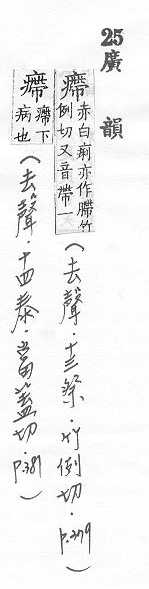 25廣韻
㿃赤白痢亦作𦜴竹例切又音帶一
(去聲·十三祭·竹例切·p.379)
㿃㿃下病也
(去聲·十四泰·當蓋切·p.381)